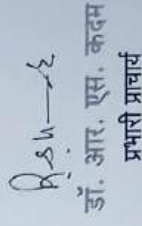 डॉ. आर. एस. कदम
प्रभारी प्राचार्य